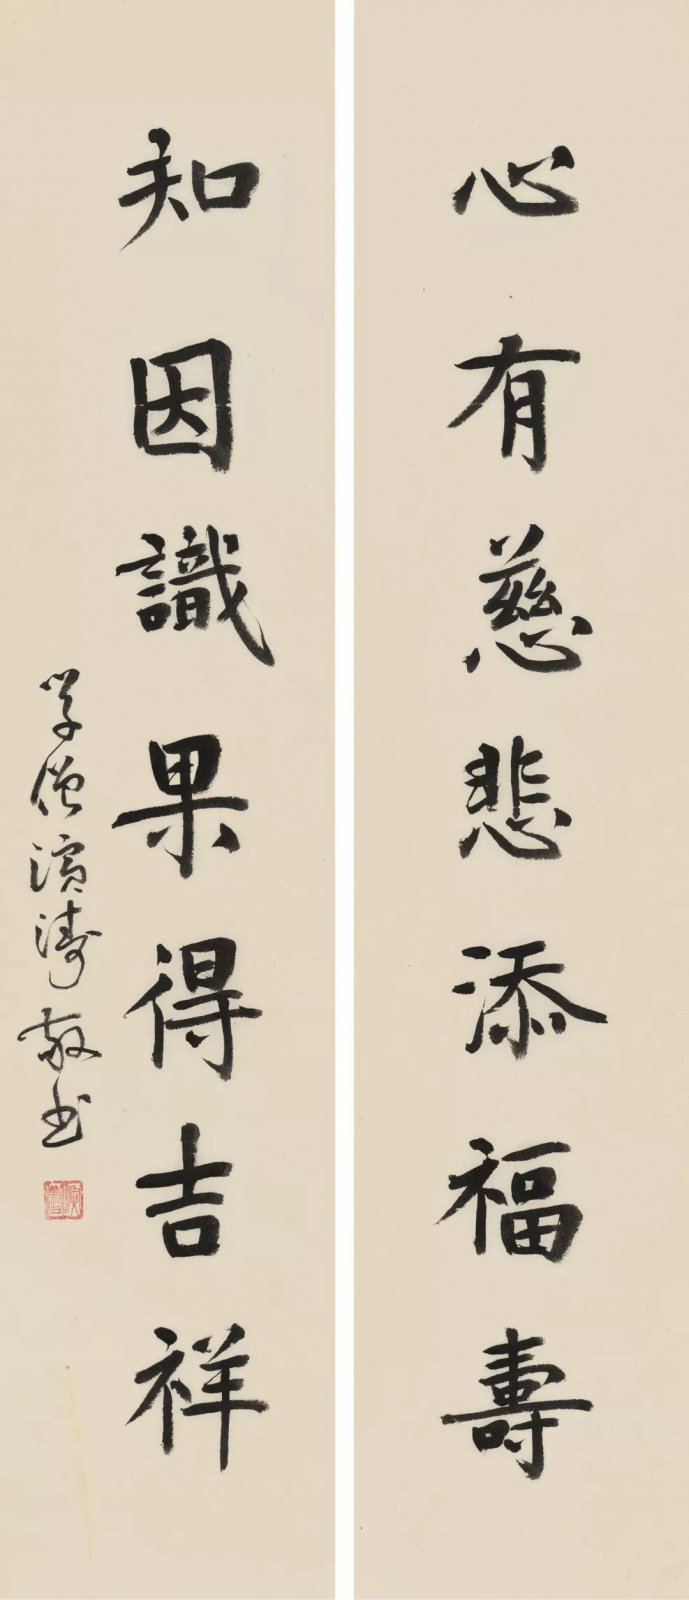 心有慈悲添福壽
知因識果得吉祥
学僧濱濤敬书